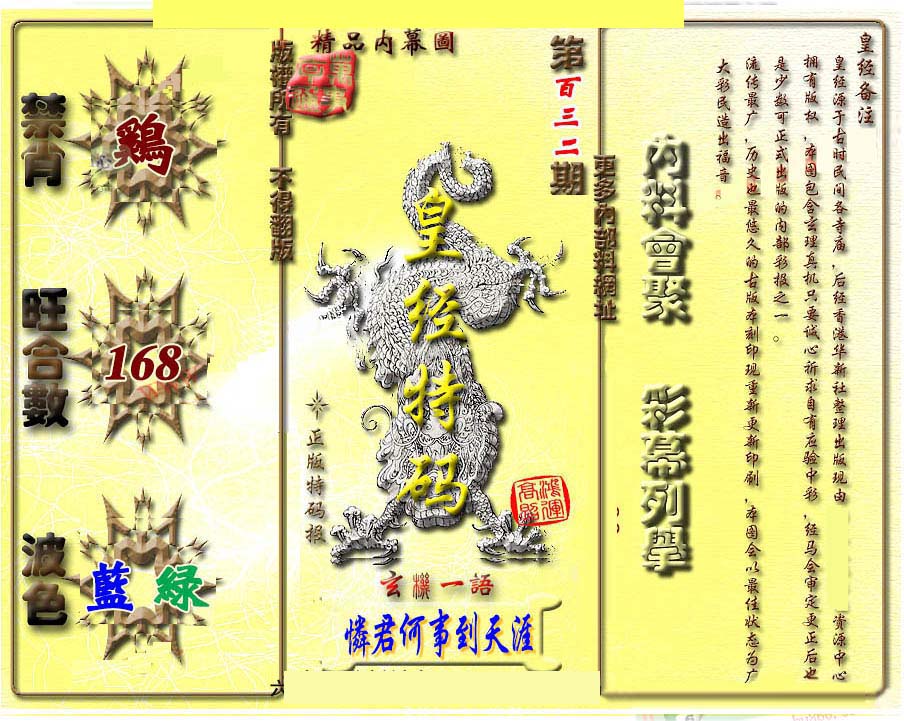 禁肖
鷄
旺合數
168
波色
藍 綠
版權所有 不得翻版
精品內幕圖
第百三二期
皇经特码
正版特码报
鴻運
高照
玄機一語
憐君何事到天涯
更多內部料網址
內料會聚
彩幕列舉
皇经备注
皇经源于古时民间各寺庙，后经香港华新社整理出版现由 资源中心
拥有版权，本图包含玄理真机只要诚心祈求自有应验中彩，经马会审定更正后也
是少数可正式出版的内部彩报之一。
流传最广，历史也最悠久的古版本刻印现重新更新印刷，本图会以最佳状态为广
大彩民造出福音